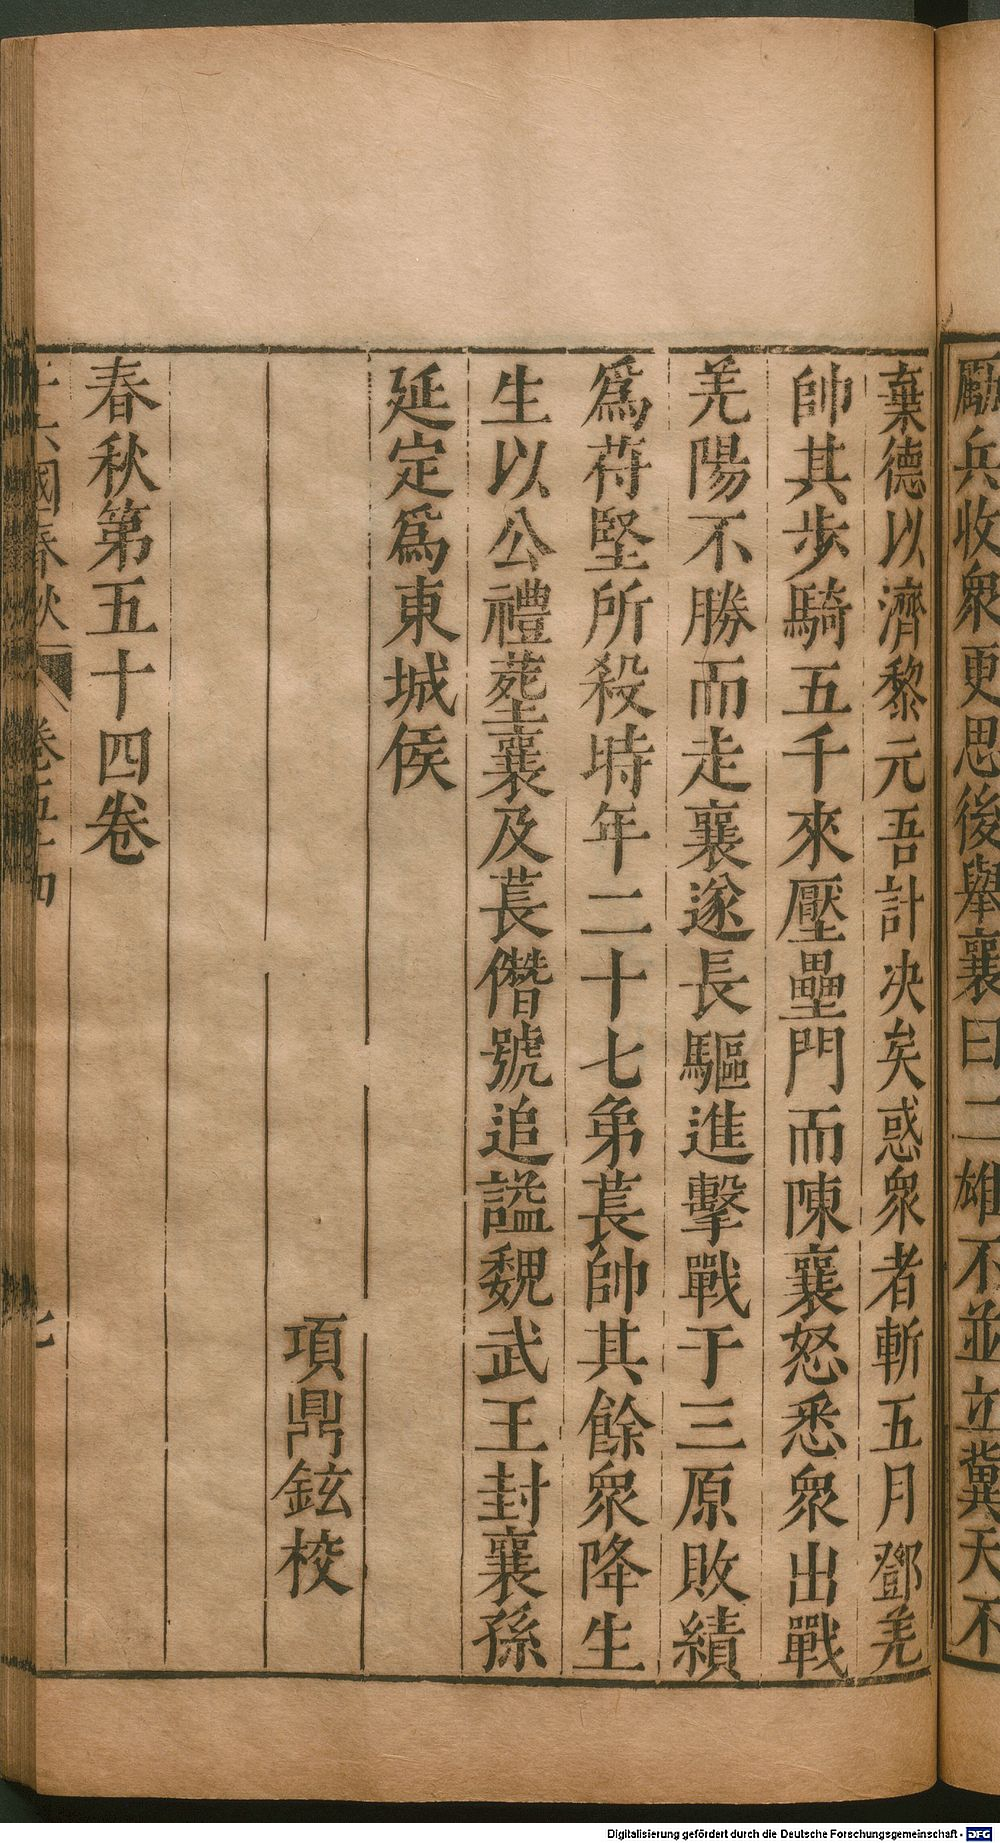 勵兵收衆更思後舉襄曰二雄不並立冀天不
棄德以濟黎元吾計决矣惑衆者斬五月鄧羌
帥其步騎五千來壓壘門而陳襄怒悉衆出戰
羌陽不勝而走襄遂長驅進擊戰于三原敗績
爲苻堅所殺時年二十七弟萇帥其餘衆降生
生以公禮塟襄及萇僭號追諡魏武王封襄孫
延定爲東城侯
項鼎鉉校
春秋第五十四卷
十六國春秋 卷五十四 七
Digitalisierung gefördert durch die Deutsche Forschungsgemeinschaft - DFG